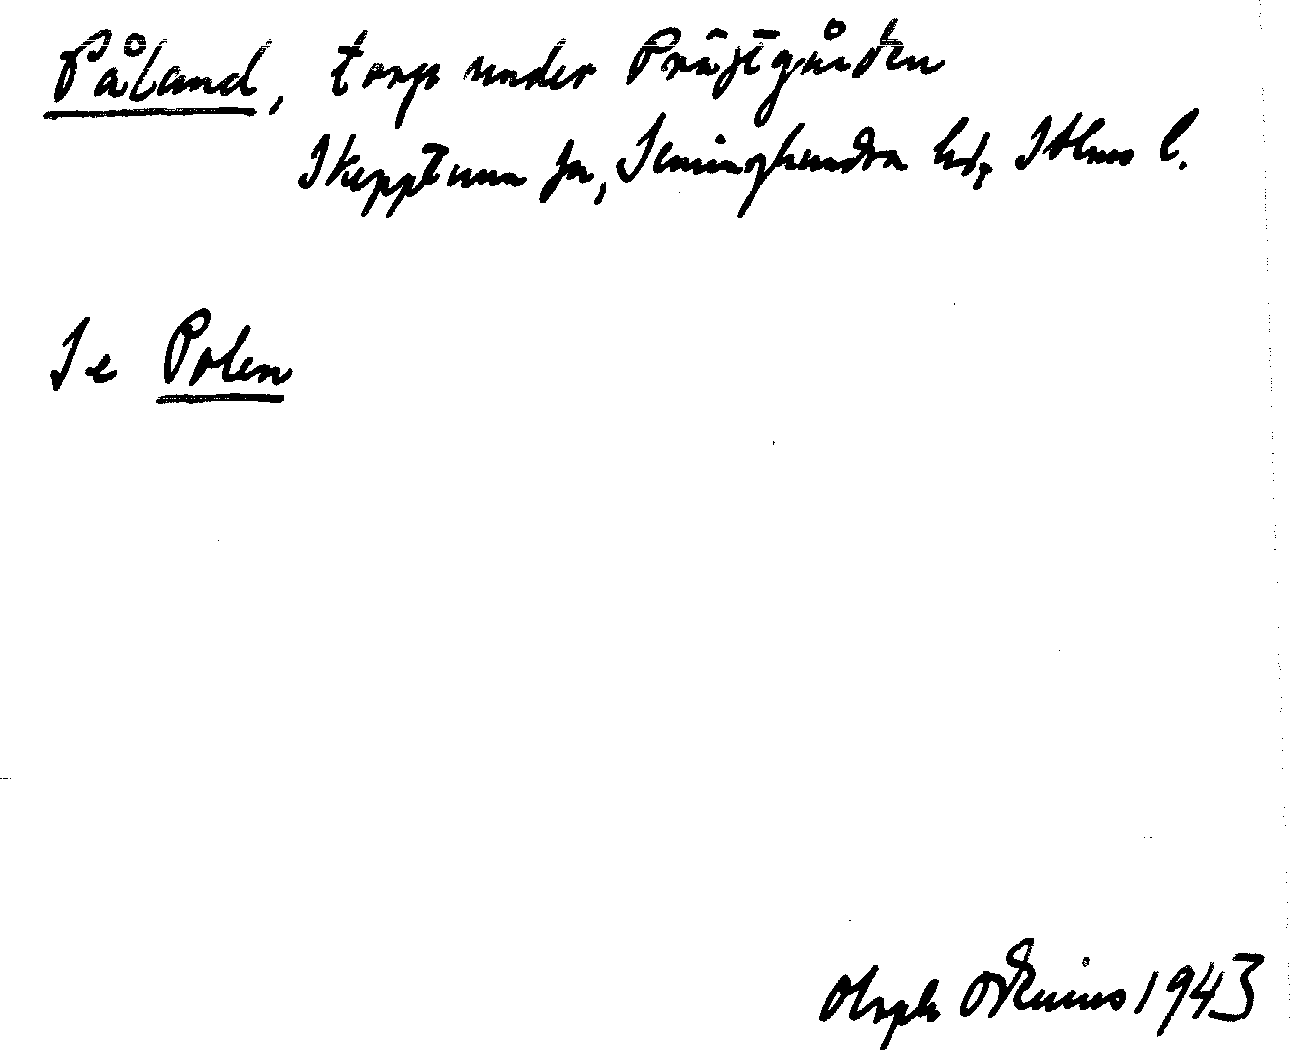 Påland, torp under Prästgården
Skepptuna sn, Seminghundra hd, Sthms l.
Se Polen
1943